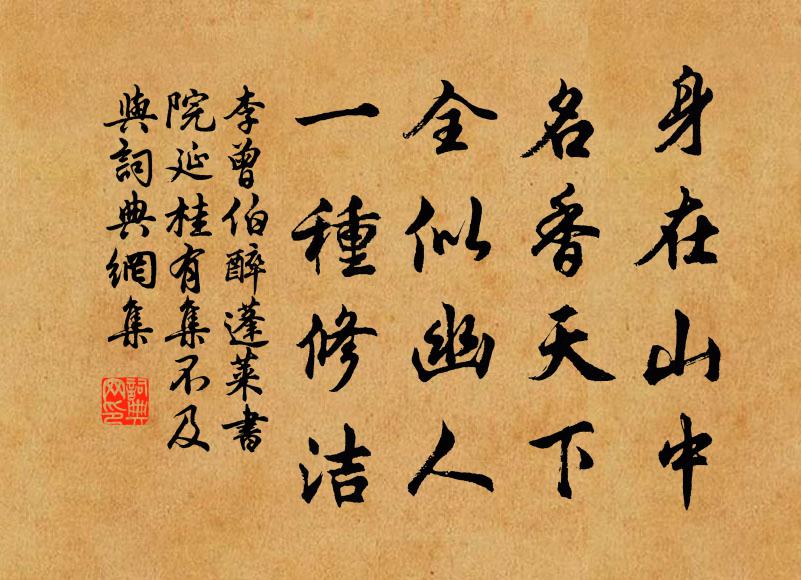 身在山中
名香天下
全似幽人
一種修洁
李曾伯醉蓬莱書
院延桂有集不及
與詞典網集
詞典
网印